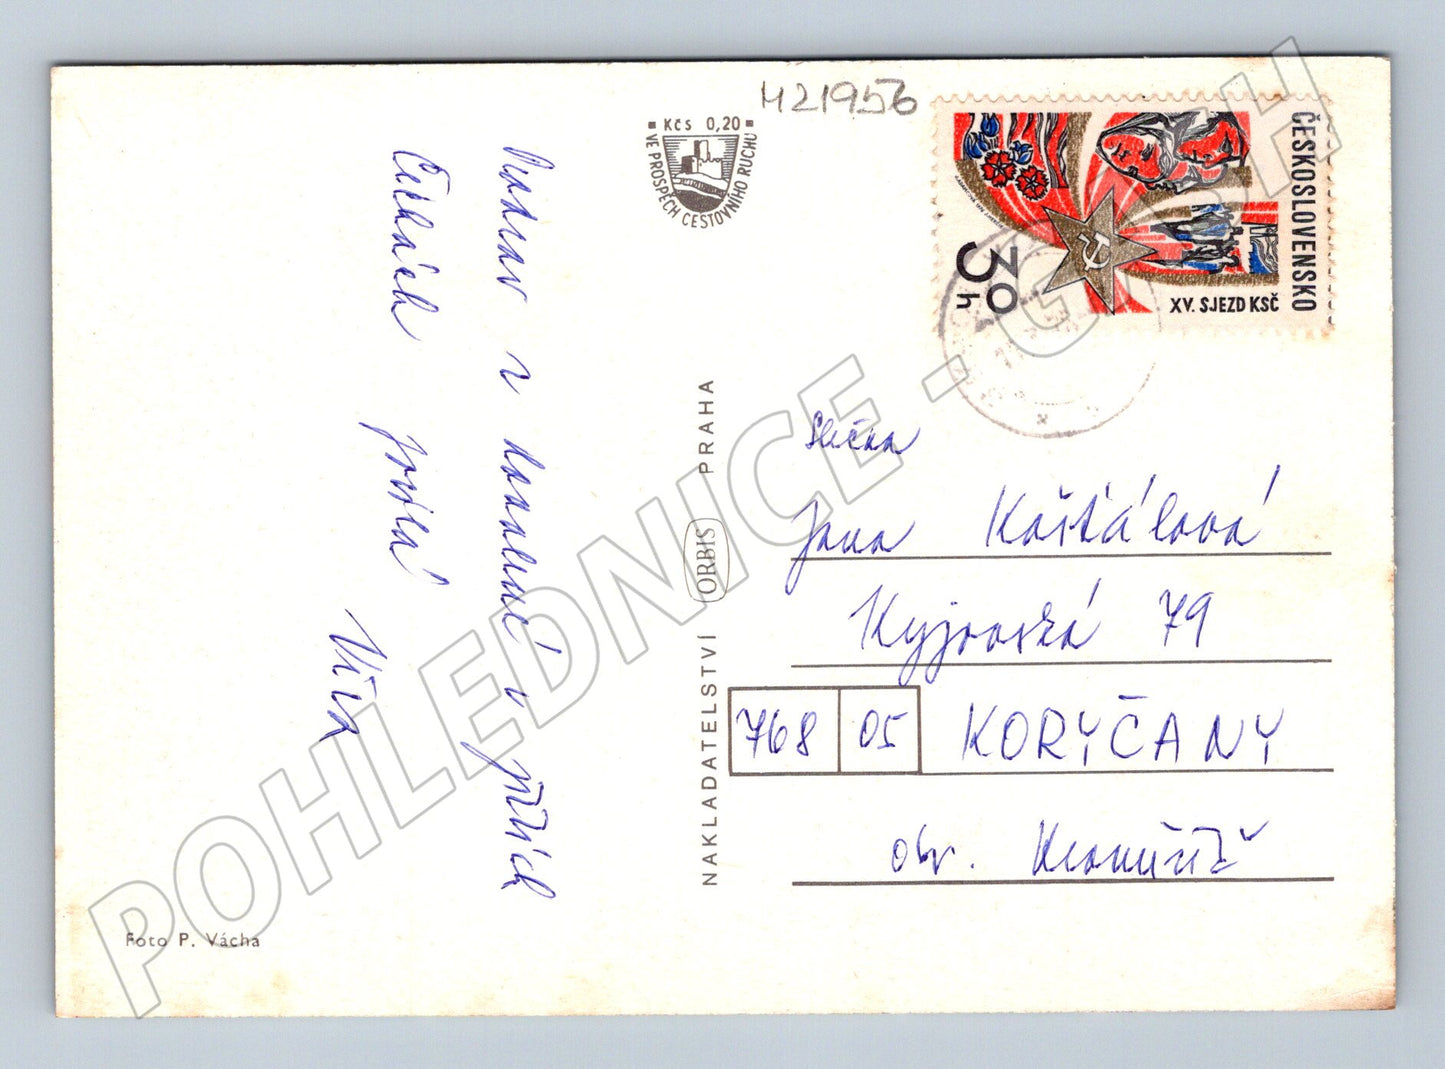 H21956
Kčs 0,20
VE PROSPĚCH CESTOVNÍHO RUCHU
ČESKOSLOVENSKO
30 h
XV. SJEZD KSČ
Pozdrav z dovolené v jižních
Čechách posílá
Věra
Slečna
Jana Košťálová
Kyjovská 79
768 05 KORYČANY
okr. Kroměříž
NAKLADATELSTVÍ ORBIS PRAHA
Foto P. Vácha
POHLEDNICE - CZ